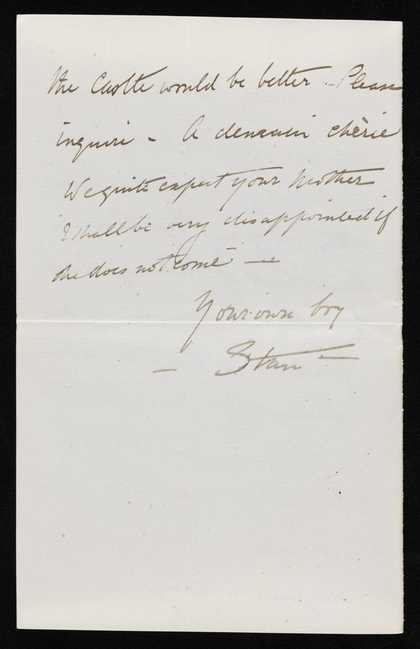 the Castle would be better - Please
inquire - A demain chèrie
We quite expect your Mother
I shall be very disappointed if
she does not come —
Your own boy
- Stan -